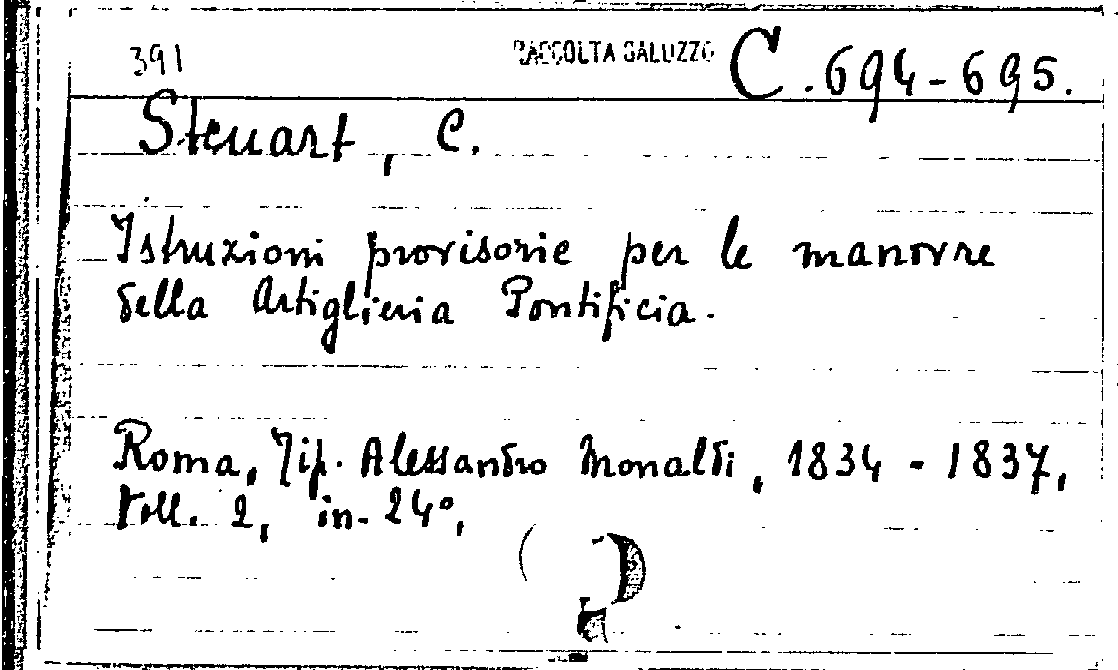 391 RACCOLTA SALUZZO C. 694-695.
Steuart, C.
Istruzioni provisorie per le manovre
della Artiglieria Pontificia.
Roma, Tip. Alessandro Monaldi, 1834 - 1837,
Voll. 2, in-24º,